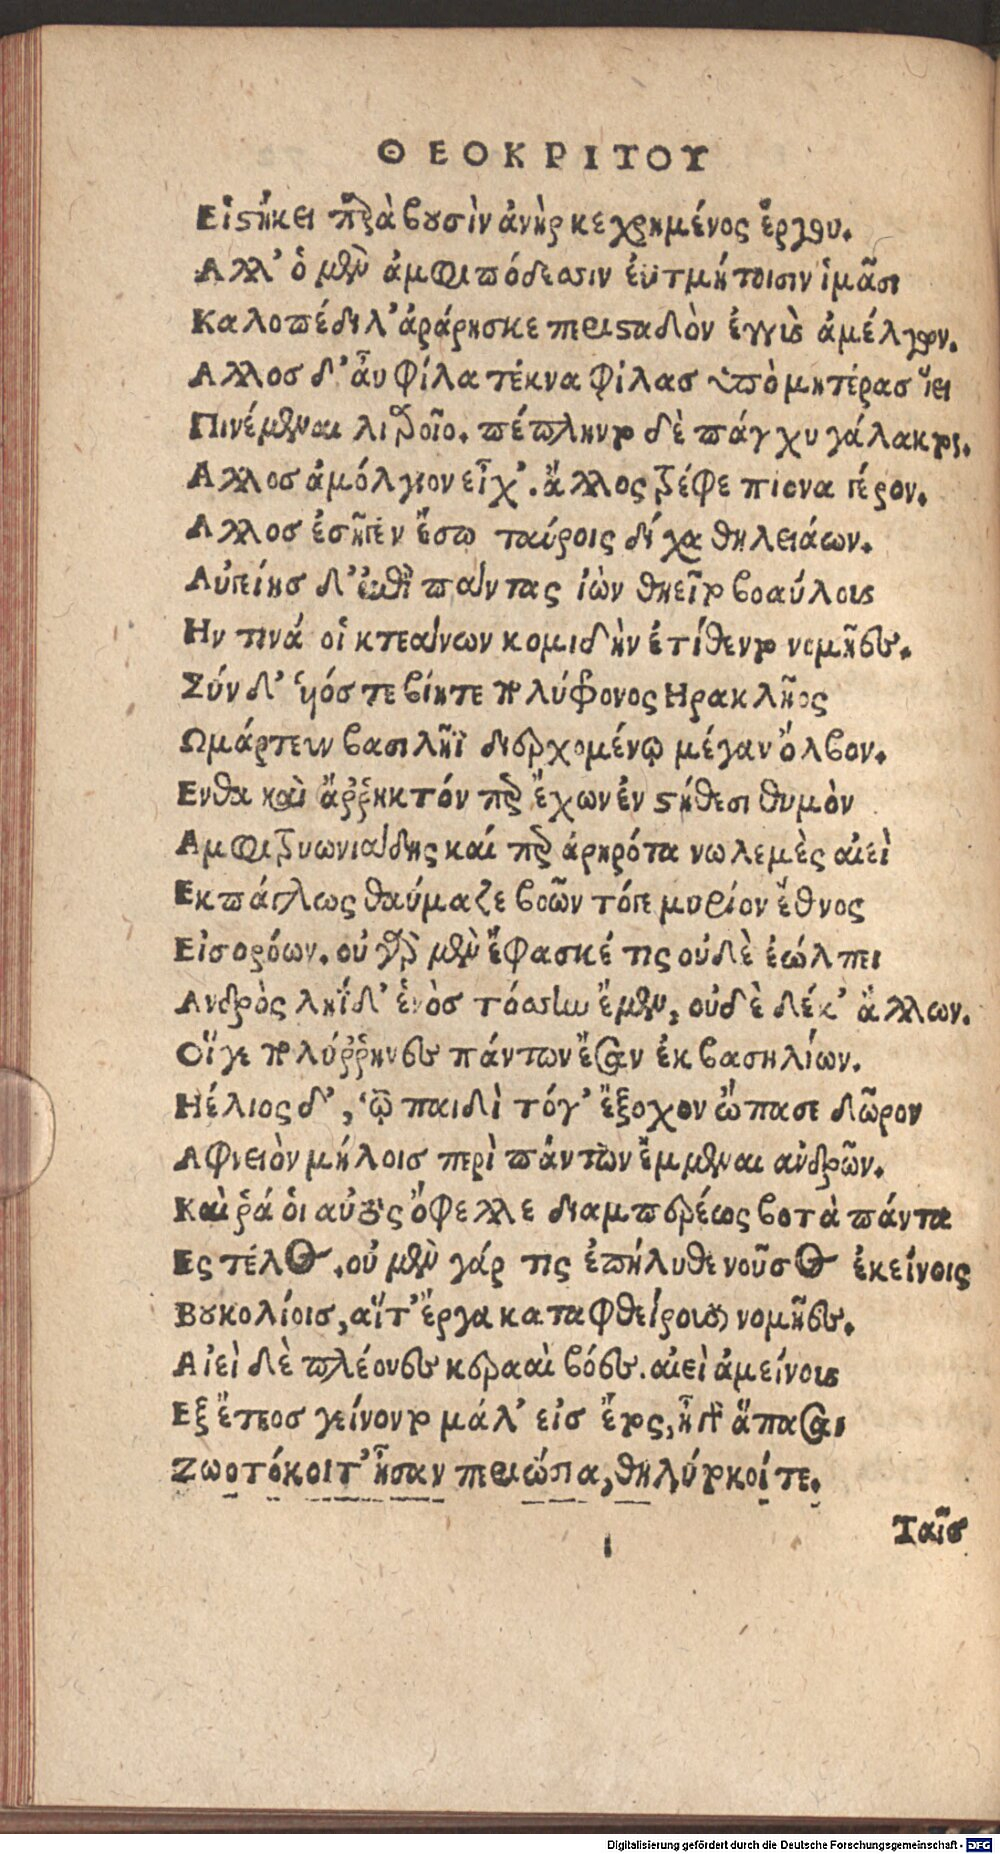 ΘΕΟΚΡΙΤΟΥ
Εἱστήκει παρὰ βουσὶν ἀνὴρ κεχρημένος ἔργου.
Αλλ' ὁ μὲν ἀμφιπόδεσσιν ἐϋτμήτοισιν ἱμᾶσι
Καλοπέδιλ' ἀράρησκε περισταδὸν ἐγγὺς ἀμέλγων.
Αλλος δ' αὖ φίλα τέκνα φίλας ὑπὸ μητέρας ἵει
Πινέμεναι λιαροῖο. πέπληντο δὲ πάγχυ γάλακτι.
Αλλος ἀμόλγιον εἶχ'. ἄλλος τρέφε πίονα τύρον.
Αλλος ἐσῆγεν ἔσω ταύροις δίχα θηλειάων.
Αὐγείης δ' ἐπὶ πάντας ἰὼν θηεῖτο βοαύλοις
Ην τινά οἱ κτεάνων κομιδὴν ἐτίθεντο νομῆες.
Σύν δ' υἱός τε βίητε πολύφρονος Ηρακλῆος
Ωμάρτευν βασιλῆϊ διερχομένῳ μέγαν ὄλβον.
Ενθα καὶ ἄῤῥηκτόν περ ἔχων ἐν στήθεσι θυμὸν
Αμφιτρυωνιάδης καί περ ἀρηρότα νωλεμὲς αἰεὶ
Εκπάγλως θαύμαζε βοῶν τόγε μυρίον ἔθνος
Εἰσορόων. οὐ γὰρ μὲν ἔφασκέ τις οὐδὲ ἐώλπει
Ανδρὸς ληΐδ' ἑνὸς τόσσην ἔμεν, οὐδὲ δέκ' ἄλλων.
Οἵγε πολύῤῥηνες πάντων ἔσαν ἐκ βασηλίων.
Ηέλιος δ', ᾧ παιδὶ τόγ' ἔξοχον ὤπασε δῶρον
Αφνειὸν μήλοις περὶ πάντων ἔμμεναι ἀνδρῶν.
Καὶ ῥά ὁι αὐτὸς ὄφελλε διαμπερέως βοτὰ πάντα
Ες τέλος. οὐ μὲν γάρ τις ἐπήλυθε νοῦσος ἐκείνοις
Βουκολίοις, αἵτ' ἔργα καταφθείρουσι νομῆες.
Αἰεὶ δὲ πλέονες κεραιαὶ βόες. αἰεὶ ἀμείνοις
Εξ ἔτεος γείνοντο μάλ' εἰς ἔτος, ἦ γὰρ ἅπασαι
Ζωοτόκοι τ' ἦσαν περιώσια, θηλύτοκοί τε.
Ταῖς
Digitalisierung gefördert durch die Deutsche Forschungsgemeinschaft - DFG